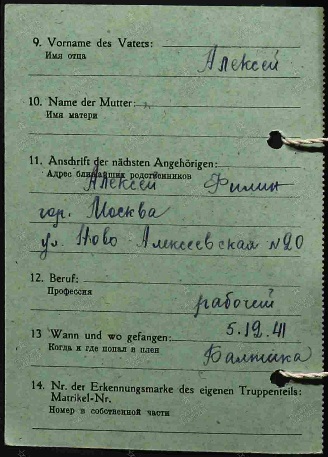 9. Vorname des Vaters:
Имя отца
Алексей
10. Name der Mutter:
Имя матери
11. Anschrift der nächsten Angehörigen:
Адрес ближайших родственников
Алексей Филин
гор. Москва
ул. Ново Алексеевская №20
12. Beruf:
Профессия
рабочей
13 Wann und wo gefangen:
5.12.41
Когда и где попал в плен
Балтика
14. Nr. der Erkennungsmarke des eigenen Truppenteils:
Matrikel-Nr.
Номер в собственной части